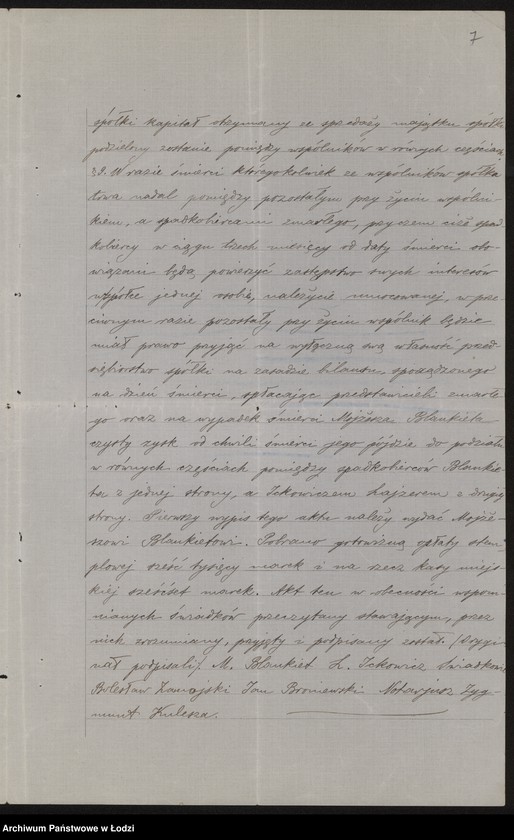 7
spółki kapitał otrzymany ze sprzedaży majątku spółki
podzielony zostanie pomiędzy wspólników w równych częściach
§ 8. W razie śmierci któregokolwiek ze wspólników spółka
trwa nadal pomiędzy pozostałym przy życiu wspólni-
kiem, a spadkobiercami zmarłego, przyczem ciż spad
kobiercy w ciągu trzech miesięcy od daty śmierci obo-
wiązani będą powierzyć zastępstwo swych interesów
w spółce jednej osobie, należycie umocowanej, w prze
ciwnym razie pozostały przy życiu wspólnik będzie
miał prawo przyjąć na wyłączną swą własność przed
siębiorstwo spółki na zasadzie bilansu, sporządzonego
na dzień śmierci, spłacając przedstawicieli zmarłe
go oraz na wypadek śmierci Mojżesza Blankieta
czysty zysk od chwili śmierci jego pójdzie do podziału
w równych częściach pomiędzy spadkobierców Blankie-
ta z jednej strony, a Ickowiczem Lajzerem z drugiej
strony. Pierwszy wypis tego aktu należy wydać Mojże-
szowi Blankietowi. Pobrano gotowizną opłaty stem
plowej sześć tysięcy marek i na rzecz kasy miejs-
kiej sześćset marek. Akt ten w obecności wspom
nianych świadków przeczytany stawającym, przez
nich zrozumiany, przyjęty i podpisany został. /Orygi
nał podpisali/. M. Blankiet L. Ickowicz Świadkowie
Bolesław Zamojski Jan Broniewski Notarjusz Zyg-
munt Kulesza.
Archiwum Państwowe w Łodzi